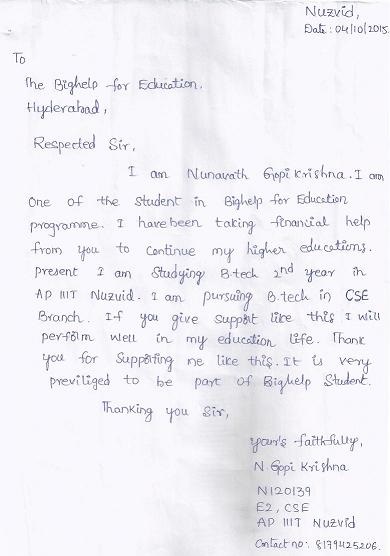 Nuzvid,
Date: 04/10/2015.
To
The Bighelp for Education,
Hyderabad,
Respected Sir,
I am Nunavath Gopi Krishna. I am
One of the Student in Bighelp for Education
programme. I have been taking financial help
from you to continue my higher educations.
present I am Studying B.tech 2nd year in
AP IIIT Nuzvid. I am pursuing B.tech in CSE
Branch. If you give support like this I will
perform well in my education life. Thank
you for Supporting me like this. It is very
previliged to be part of Bighelp Student.
Thanking you Sir,
your's faithfully,
N. Gopi Krishna
N120139
E2, CSE
AP IIIT Nuzvid
Contact no: 8179425206.